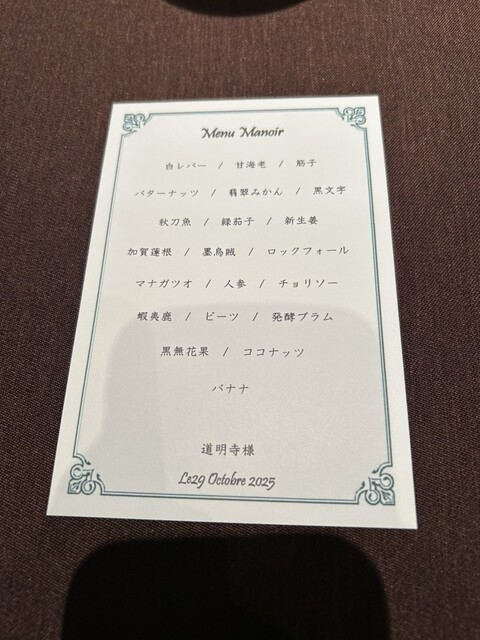 Menu Manoir
白レバー / 甘海老 / 筋子
バターナッツ / 翡翠みかん / 黒文字
秋刀魚 / 緑茄子 / 新生姜
加賀蓮根 / 墨烏賊 / ロックフォール
マナガツオ / 人参 / チョリソー
蝦夷鹿 / ビーツ / 発酵プラム
黒無花果 / ココナッツ
バナナ
道明寺様
Le29 Octobre 2025